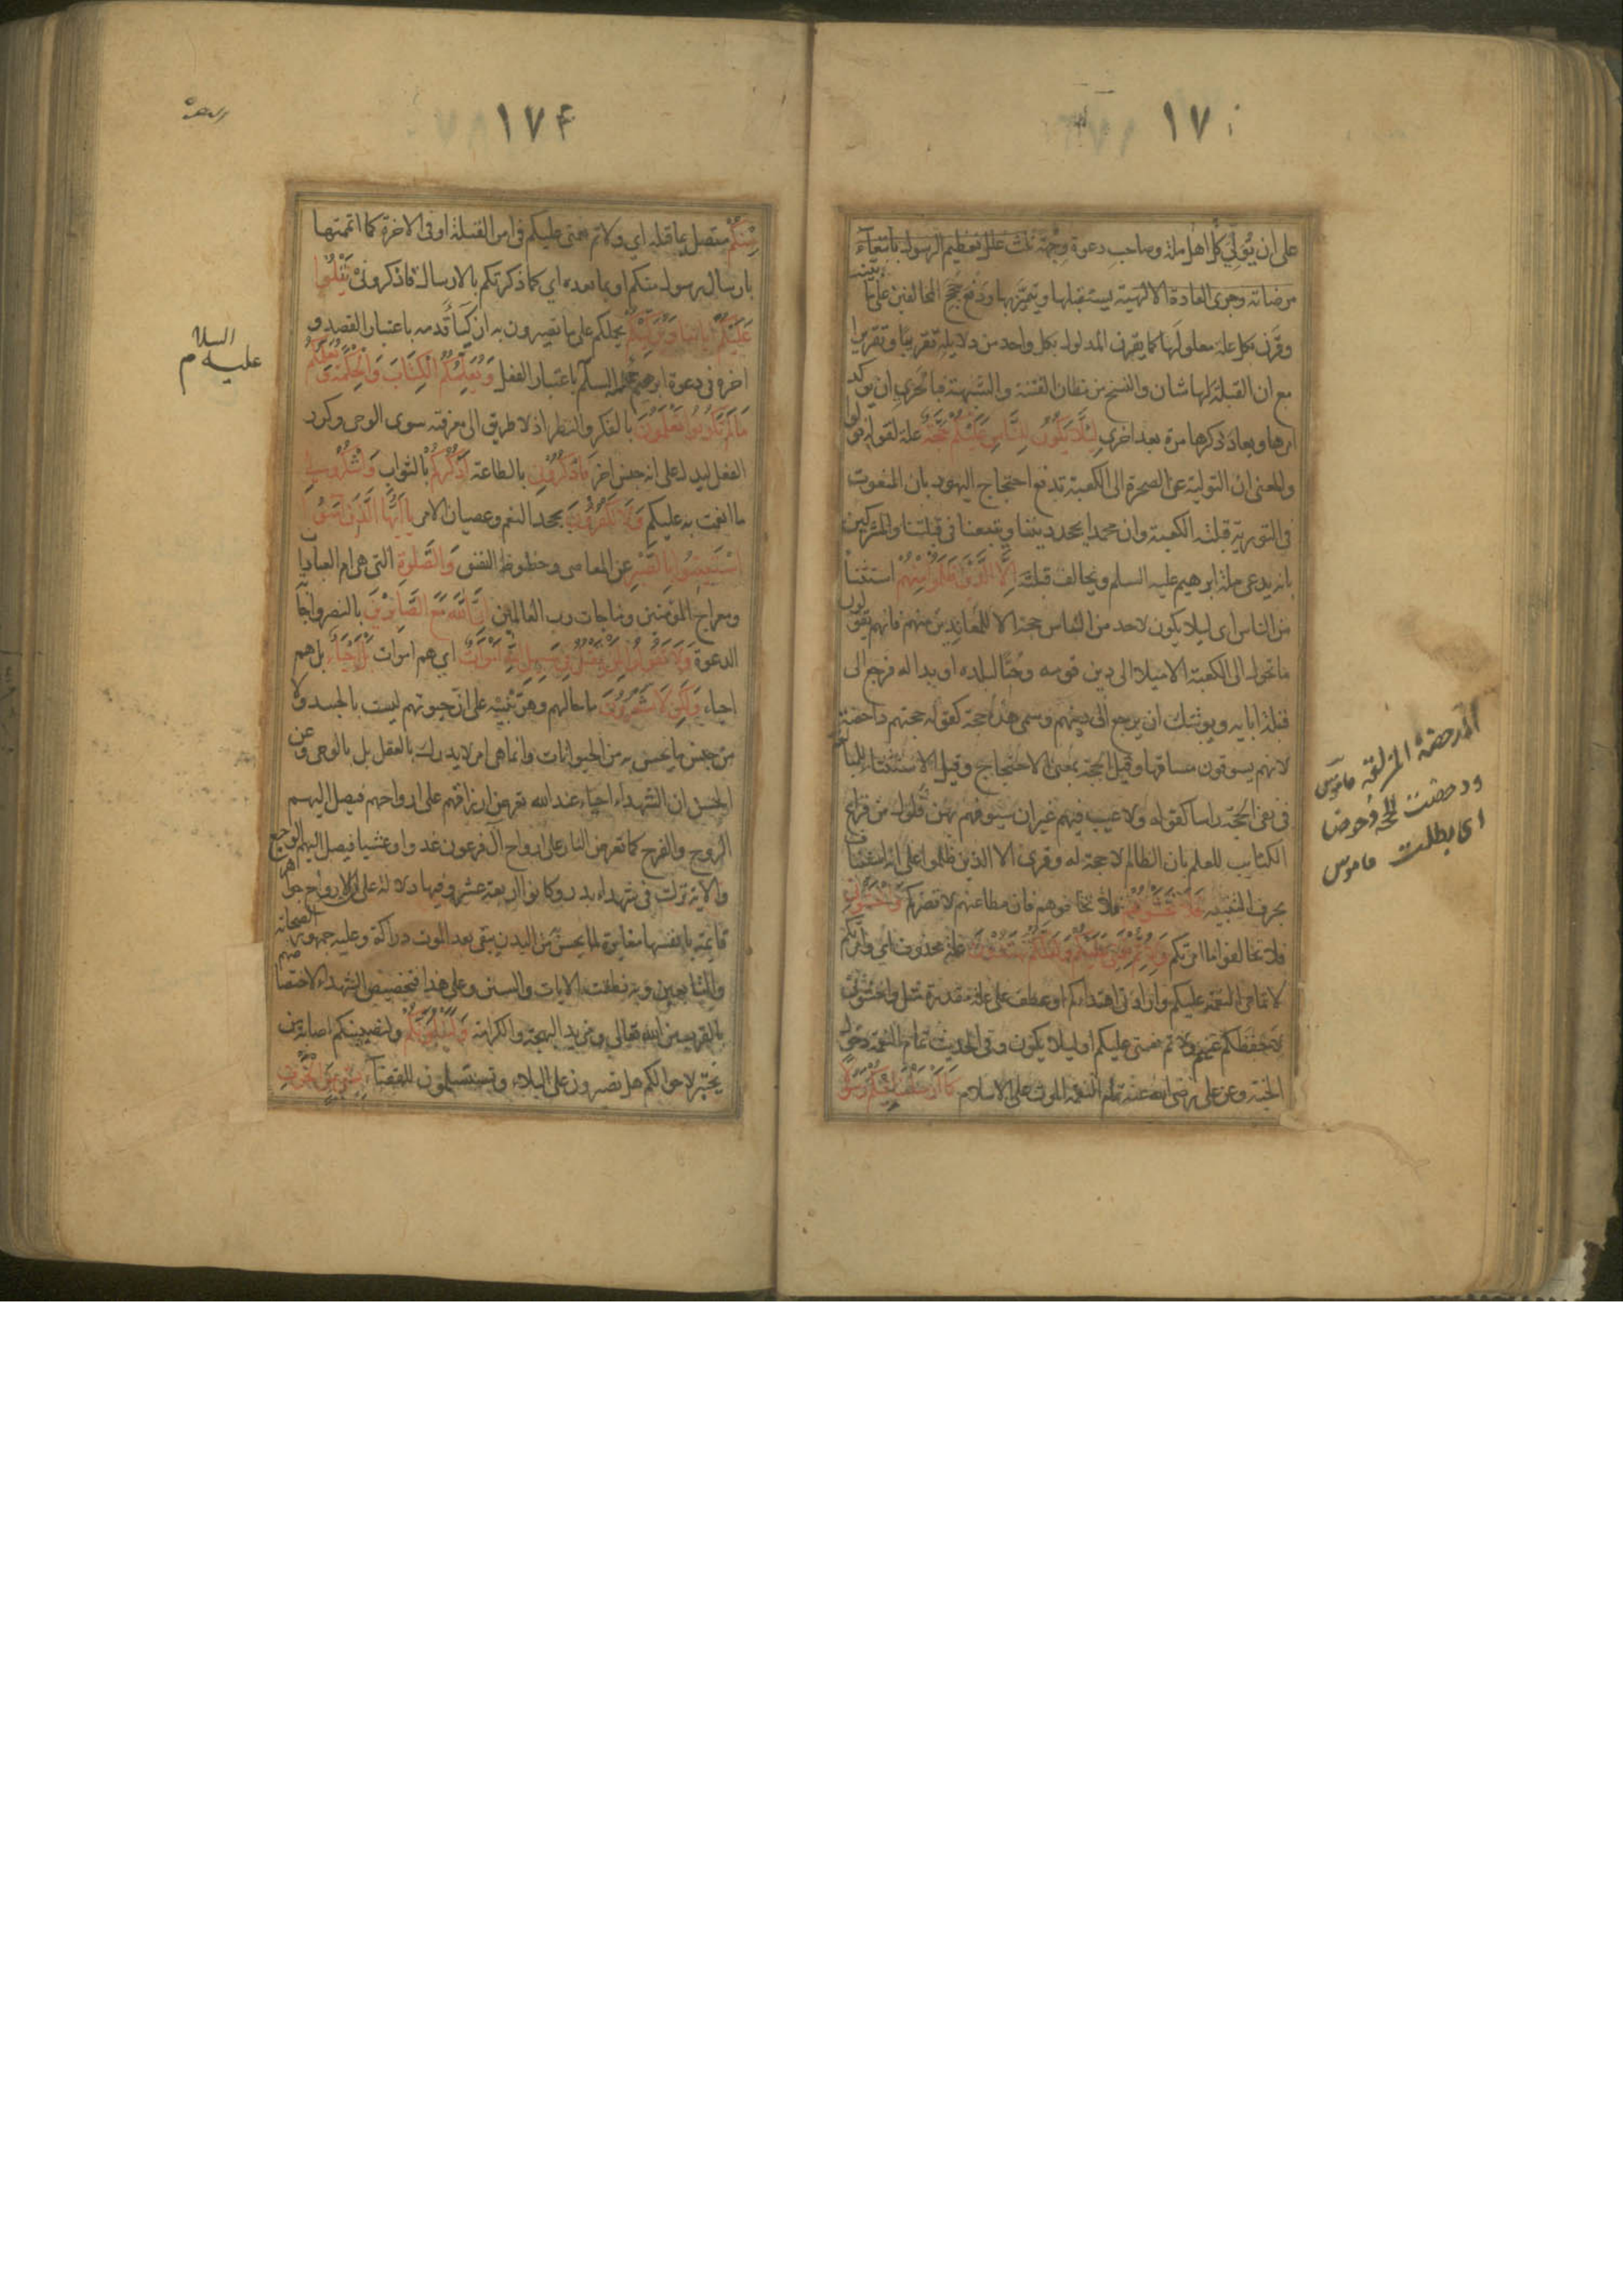 ١٧
على ان يولي كل اهل ملة وصاحب دعوة وجهة ثلث علل تعظيم الرسول بابتغاء
مرضاته وجرى العادة الالهية يستقبلها ويتميز بها ودفع حجج المخالفين على ما نبينه
وقرن بكل علة معلولها كما يقرن المدلول بكل واحد من دلايله تقريبا وتقريرا
مع ان القبلة لها شان والنسخ من مظان الفتنة والشبهة فبالحري ان يوكد
امرها ويعاد ذكرها مرة بعد اخرى لِئَلَّا يَكُونَ لِلنَّاسِ عَلَيْكُمْ حُجَّةٌ علة لقوله فولوا
والمعنى ان التولية عن الصخرة الى الكعبة تدفع احتجاج اليهود بان المنعوت
فى التورية قبلته الكعبة وان محمدا يجحد ديننا ويتبعنا فى قبلتنا والمشركين
بانه يدعى ملة ابرهيم عليه السلم ويخالف قبلته اِلَّا الَّذِينَ ظَلَمُوا مِنْهُمْ استثناء
من الناس اى ليلا يكون لاحد من الناس حجة الا للمعاندين منهم فانهم يقولون
ما تحول الى الكعبة الا ميلا الى دين قومه وحبا لبلده او بدا له فرجع الى
قبلة ابايه ويوشك ان يرجع الى دينهم وسمى هذا حجة كقوله حجتهم داحضة
لانهم يسوقون مساقها وقيل الحجة بمعنى الاحتجاج وقيل الاستثناء للمبالغة
فى نفى الحجة راسا كقوله ولا عيب فيهم غير ان سيوفهم بهن فلول من قراع
الكتايب للعلم بان الظالم لا حجة له وقرى الا الذين ظلموا على انه استيناف
بحرف التنبيه فَلَا تَخْشَوْهُمْ فلا تخافوهم فان مطاعنهم لا تضركم وَاخْشَوْنِي
فلا تخالفوا ما امرتكم وَلِأُتِمَّ نِعْمَتِي عَلَيْكُمْ وَلَعَلَّكُمْ تَهْتَدُونَ علة محذوف اى وامرتكم
لاتمامى النعمة عليكم وارادتى اهتداءكم او عطف على علة مقدرة مثل واخشونى
لاحفظكم عنهم ولاتم نعمتى عليكم او ليلا يكون وفى الحديث تمام النعمة دخول
الجنة وعن على رضى الله عنه تمام النعمة الموت على الاسلام كَمَا أَرْسَلْنَا فِيكُمْ رَسُولًا
المدحضة المزلقة قاموس
ودحضت الحجة دحوضا
اى بطلت قاموس
١٧۴
مِنْكُمْ متصل بما قبله اى ولاتم نعمتى عليكم فى امر القبلة او فى الاخرة كما اتممتها
بارسال رسول منكم او بما بعده اى كما ذكرتكم بالارسال فاذكرونى يَتْلُوا
عَلَيْكُمْ آيَاتِنَا وَيُزَكِّيكُمْ يحملكم على ما تصيرون به ازكياء قدمه باعتبار القصد و
اخره فى دعوة ابرهيم عليه السلم باعتبار الفعل وَيُعَلِّمُكُمُ الْكِتَابَ وَالْحِكْمَةَ وَيُعَلِّمُكُمْ
مَا لَمْ تَكُونُوا تَعْلَمُونَ بالفكر والنظر اذ لا طريق الى معرفته سوى الوحى وكرر
الفعل ليدل على انه جنس اخر فَاذْكُرُونِي بالطاعة أَذْكُرْكُمْ بالثواب وَاشْكُرُوا لِي
ما انعمت به عليكم وَلَا تَكْفُرُونِ بجحد النعم وعصيان الامر يَا أَيُّهَا الَّذِينَ آمَنُوا
اسْتَعِينُوا بِالصَّبْرِ عن المعاصى وحظوظ النفس وَالصَّلٰوةِ التى هى ام العبادات
ومعراج المؤمنين ومناجات رب العالمين إِنَّ اللّٰهَ مَعَ الصَّابِرِينَ بالنصر واجابة
الدعوة وَلَا تَقُولُوا لِمَنْ يُقْتَلُ فِي سَبِيلِ اللّٰهِ أَمْوَاتٌ اى هم اموات بَلْ أَحْيَاءٌ بل هم
احياء وَلٰكِنْ لَا تَشْعُرُونَ ما حالهم وهو تنبيه على ان حيوتهم ليست بالجسد ولا
من جنس ما يحس به من الحيوانات وانما هى امر لا يدرك بالعقل بل بالوحى وعن
الحسن ان الشهداء احياء عند الله تعرض ارزاقهم على ارواحهم فيصل اليهم
الروح والفرح كما تعرض النار على ارواح آل فرعون غدوا وعشيا فيصل اليهم الوجع
والاية نزلت فى شهداء بدر وكانوا اربعة عشر وفيها دلالة على ان الارواح جواهر
قايمة بانفسها مغايرة لما يحس من البدن يبقى بعد الموت دراكة وعليه جمهور الصحابة
والتابعين وبه نطقت الايات والسنن وعلى هذا فتخصيص الشهداء لاختصاصهم
بالقرب من الله تعالى ومزيد البهجة والكرامة وَلَنَبْلُوَنَّكُمْ ولنصيبنكم اصابة من
يختبر لاحوالكم هل تصبرون على البلاء وتستسلمون للقضاء بِشَيْءٍ مِنَ الْخَوْفِ
السلا
عليه م